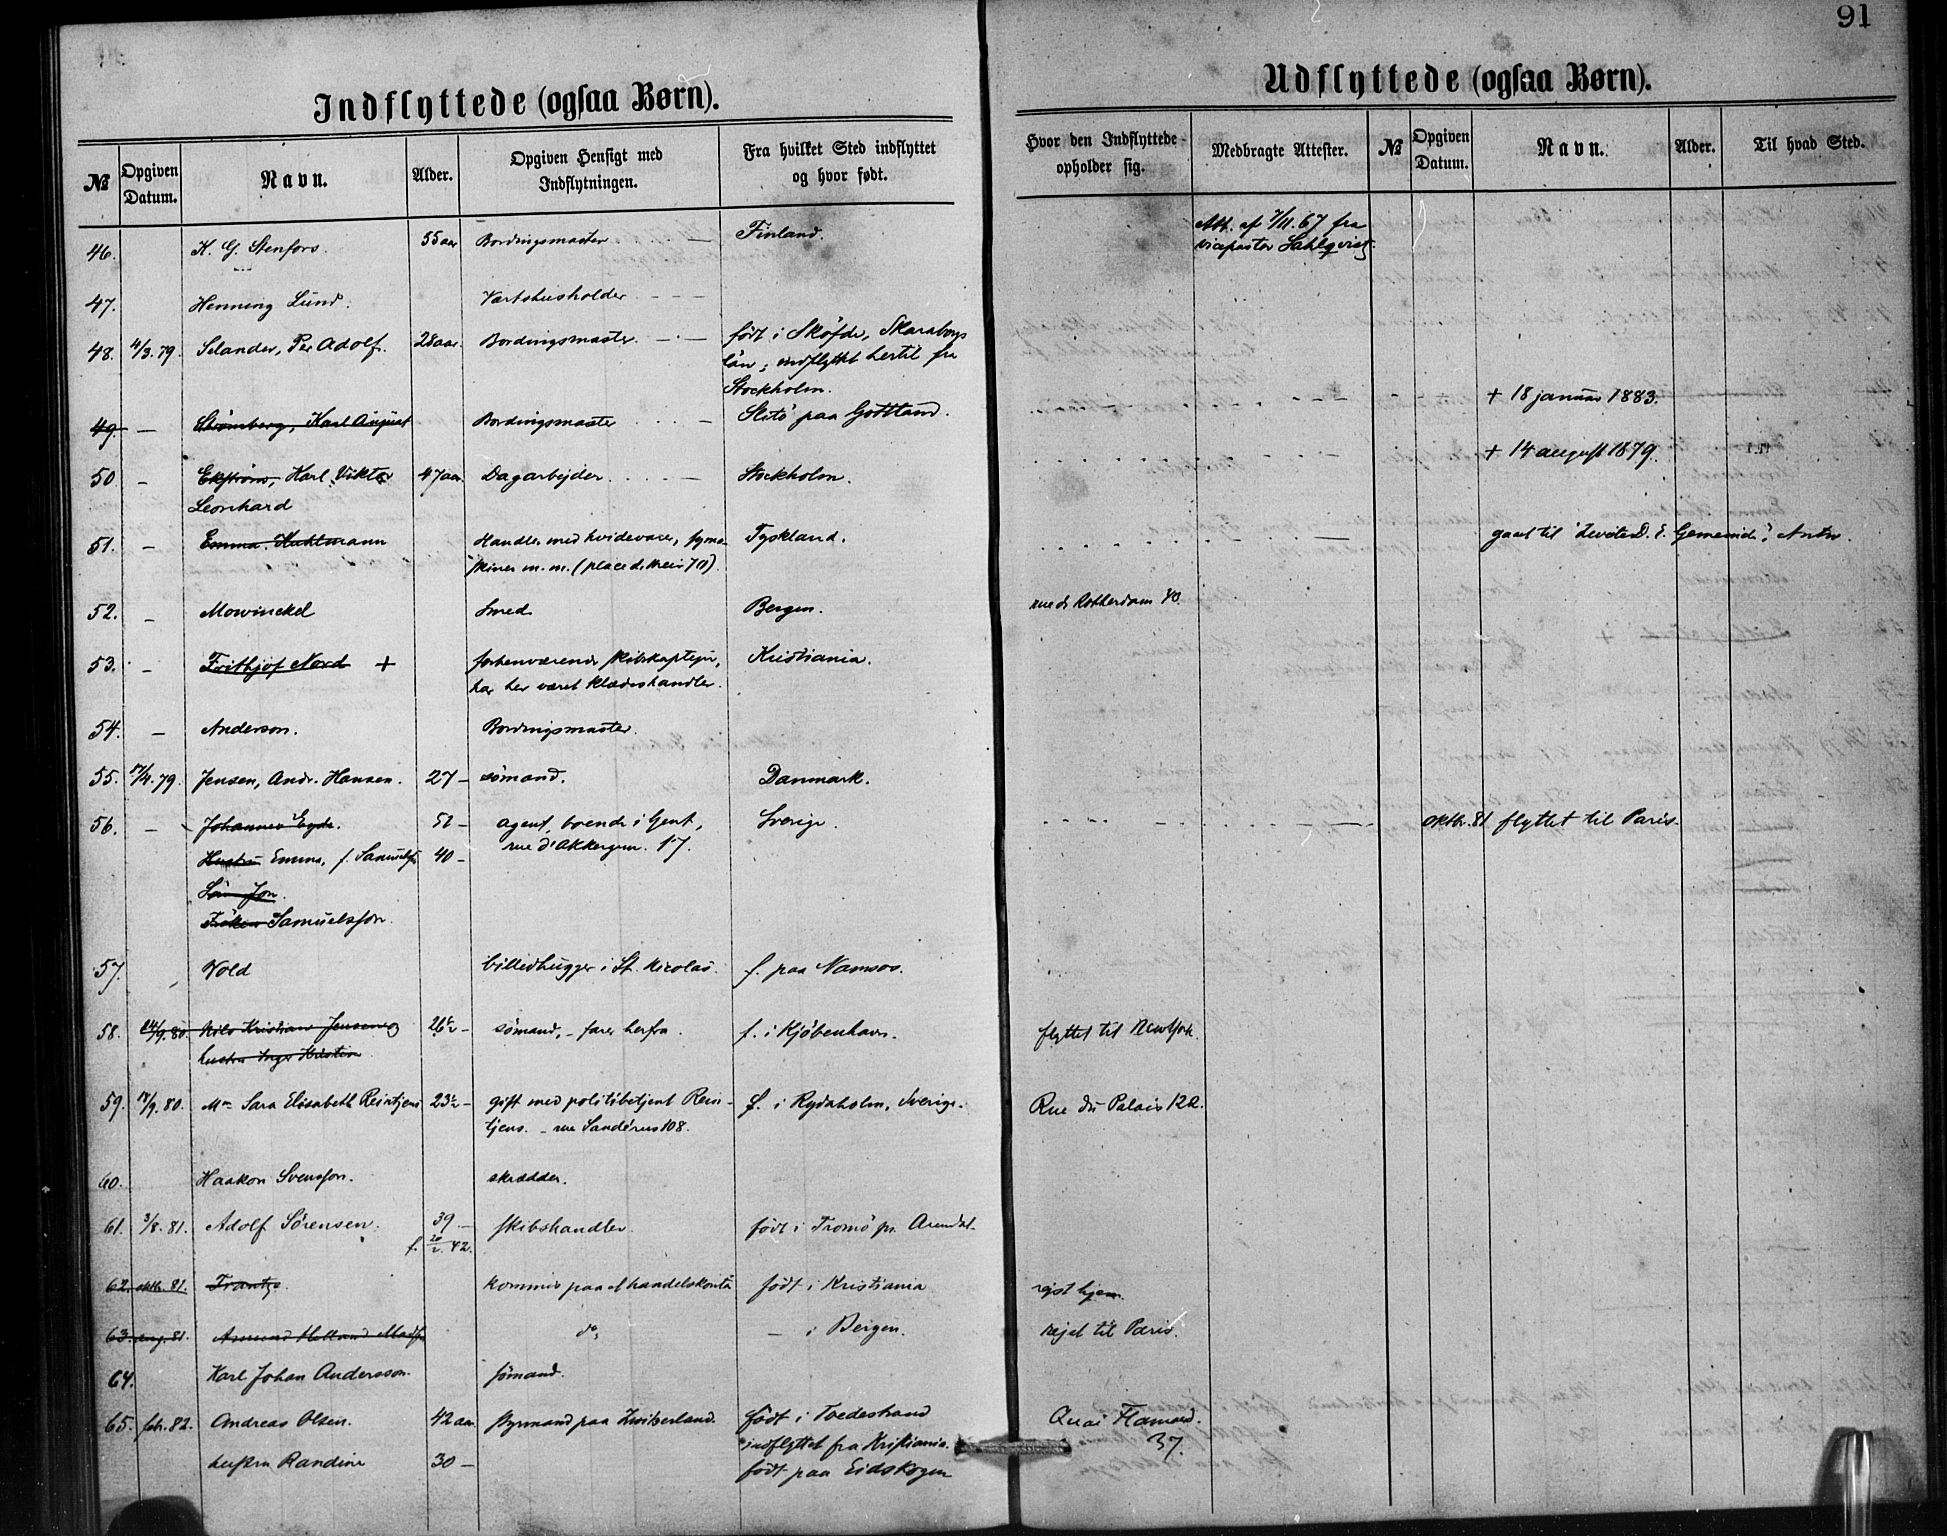 91
Indflyttede (ogsaa Børn).
Udflyttede (ogsaa Børn).
№ | Opgiven Datum. | Navn. | Alder. | Opgiven Hensigt med Indflytningen. | Fra hvilket Sted indflyttet og hvor født. | Hvor den Indflyttede opholder sig. | Medbragte Attester. | № | Opgiven Datum. | Navn. | Alder. | Til hvad Sted.
46. K. G. Stenfors. 55 aar Bordingsmaster Finland. Att. af 7/11.67 fra
vicepastor Sahlqvist.
47. Henning Lund. Vertshusholder
48. 4/3.79. Selander, Per Adolf. 28 aar. Bordingsmaster født i Skøfde, Skaraborgs
län; indflyttet hertil fra
Stockholm.
49. – Strömberg, Karl August Bordingsmaster Slitö paa Gottland. + 18 januar 1883.
50 – Ekström, Karl Viktor 47 aar. Dagarbejder Stockholm. + 14 august 1879.
Leonhard
51. – Emma Kuhlmann Handler med hvidevarer, syma- Tyskland. gaaet til
skiner m. m.
52. – Mowinckel Smed Bergen. rue de Rotterdam 40.
53. – Frithjof Nord + forhenværende skibskaptejn, Kristiania.
har her været klædeshandler.
54. – Anderson. Bordingsmaster.
55. 17/4.79. Jensen, Andr. Hansen. 27 – sømand. Danmark.
56. – Johannes Eyde. 52 – agent, boende i Gent, Sverige oktbr. 81 flyttet til Paris.
Hustru Emma, f. Samuelsson 40 – rue d'Akkergem. 17.
Søn Jon.
Frøken Samuelsson.
57. Vold billedhugger i St. Nicolas. f. paa Namsos.
58. 24/9.80. Nils Kristian Jensen og 26½ – sømand, – farer herfra. f. i Kjøbenhavn. flyttet til New York.
hustru Inger Kristine
59. 17/9.80. Mme Sara Elisabeth Reintjens 23½ – gift med politibetjent Rein- f. i Rydaholm, Sverige. Rue du Palais 122.
tjens. – rue Sandérus 108.
60. Haakon Svensson. skrædder.
61. 3/8.81. Adolf Sørensen. 39 – skibshandler. født i Tromö pr. Arendal.
f. 20/2 42.
62. oktb. 81. Frantze. kommis paa et handelskontor født i Kristiania rejst hjem.
63. aug. 81. do. – i Bergen. rejst til Paris.
64. Karl Johan Andersson. sømand.
65. febr. 82. Andreas Olsen. 42 aar. styrmand paa Zwitserland. født i Tvedestrand Quai Flamand.
indflyttet fra Kristiania. 37.
hustru Randine 30 – født paa Eidskogen